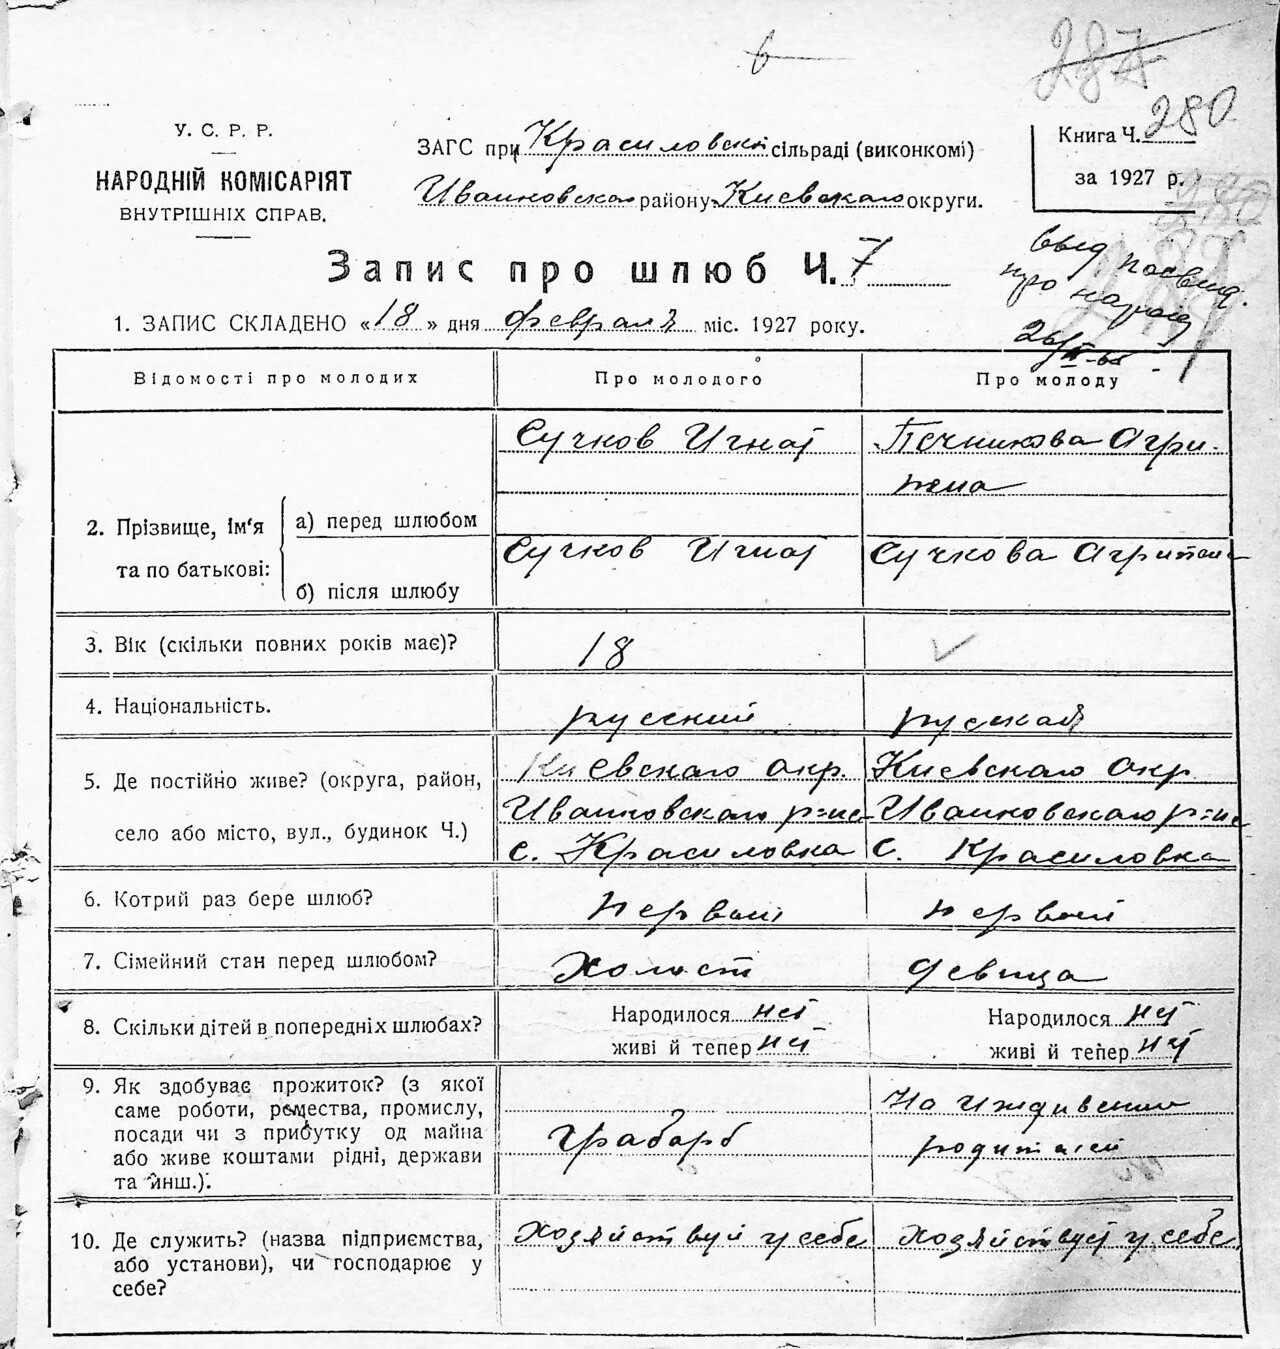 287
280
У. С. Р. Р.
НАРОДНІЙ КОМІСАРІЯТ
ВНУТРІШНІХ СПРАВ.
ЗАГС при Красиловской сільраді (виконкомі)
Иванковскаго району Киевскаго округи.
Книга Ч. 280
за 1927 р.
Запис про шлюб Ч. 7
про народ
1. ЗАПИС СКЛАДЕНО «18» дня февраля міс. 1927 року.
Відомості про молодих Про молодого Про молоду
2. Прізвище, ім'я та по батькові:
а) перед шлюбом Сучков Игнат Печникова Агрипена
б) після шлюбу Сучков Игнат Сучкова Агрипена
3. Вік (скільки повних років має)? 18
4. Національність. русский русская
5. Де постійно живе? (округа, район, Киевскаго окр. Киевскаго окр
село або місто, вул., будинок Ч.) Иванковскаго р-на Иванковскаго р-на
с. Красиловка с. Красиловка
6. Котрий раз бере шлюб? первый первый
7. Сімейний стан перед шлюбом? Холост девица
8. Скільки дітей в попередніх шлюбах? Народилося нет Народилося нет
живі й тепер нет живі й тепер нет
9. Як здобуває прожиток? (з якої На иждивении
саме роботи, ремества, промислу,
посади чи з прибутку од майна Грабарь родителей
або живе коштами рідні, держави
та инш.).
10. Де служить? (назва підприємства, Хозяйствует у себе Хозяйствует у себе
або установи), чи господарює у
себе?